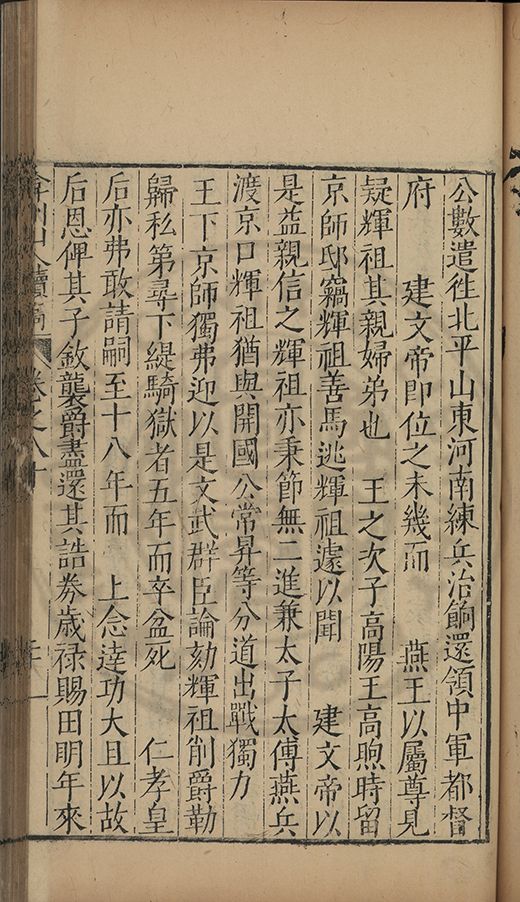 公數遣徃北平山東河南練兵治餉還領中軍都督
府　　建文帝即位之未幾而　　燕王以屬尊見
疑輝祖其親婦弟也　王之次子高陽王高煦時留
京師邸竊輝祖善馬逃輝祖遽以聞　　建文帝以
是益親信之輝祖亦秉節無二進兼太子太傅燕兵
渡京口輝祖猶與開國公常昇等分道出戰獨力
王下京師獨弗迎以是文武群臣論劾輝祖削爵勒
歸私第尋下緹騎獄者五年而卒盆死　　仁孝皇
后亦弗敢請嗣至十八年而　上念逹功大且以故
后恩俾其子欽襲爵盡還其誥券歳祿賜田明年來
弇州山人續稿　卷之八十